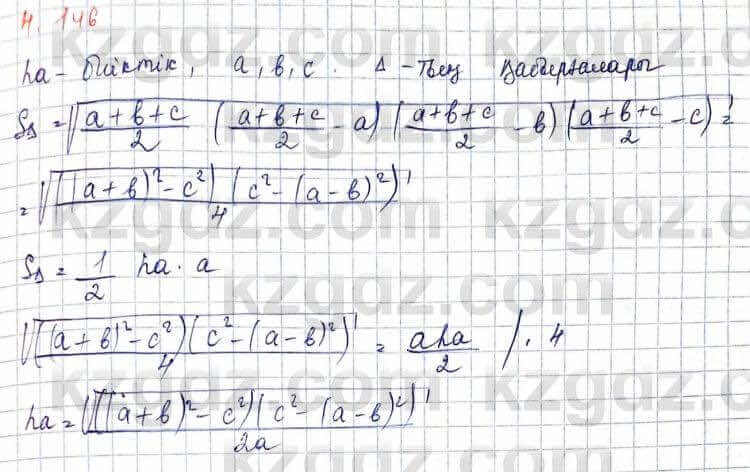 4.146
ha - биіктік, а, в, с. Δ - тың қабырғалары
SΔ = √(a+b+c)/2 ((a+b+c)/2 - a) ((a+b+c)/2 - b) ((a+b+c)/2 - c) =
= √((a+b)² - c²)(c² - (a-b)²) / 4
SΔ = 1/2 ha · a
√((a+b)² - c²)(c² - (a-b)²) / 4 = aha/2 / · 4
ha = √((a+b)² - c²)(c² - (a-b)²) / 2a
kzgdz.com